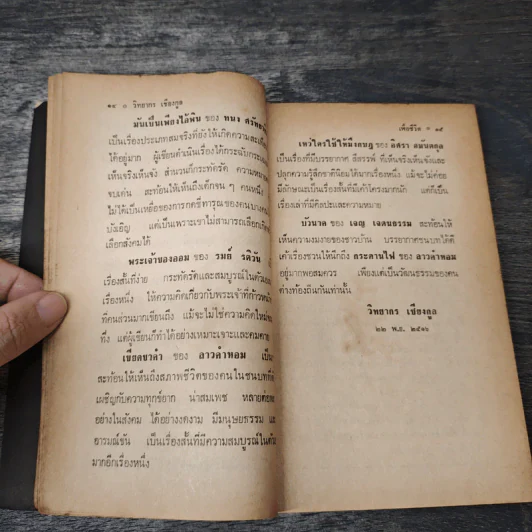 ๑๔ ๐ วิทยากร เชียงกูล
มันเป็นเพียงไอ้พิน ของ
เป็นเรื่องประเภทสมจริงที่ยังให้เกิดความสะเทือน
ได้อยู่มาก ผู้เขียนดำเนินเรื่องได้กระฉับกระเฉง
เห็นจริงเห็นจัง สำนวนก็กระทัดรัด ความหมาย
ชบเด่น สะท้อนให้เห็นถึงเด็กจน ๆ คนหนึ่ง
ไม่ได้เป็นเหยื่อของการกดขี่ทารุณของคนบางคน
บังเอิญ แต่เป็นเพราะเขาไม่สามารถเลือกเกิด
เลือกสังคมได้
พระเจ้าของออม ของ รมย์ รติวัน
เรื่องสั้นที่ง่าย กระทัดรัดและสมบูรณ์ในตัวเอง
เรื่องหนึ่ง ให้ความคิดเกี่ยวกับพระเจ้าที่ก้าวหน้า
ที่คนส่วนมากเขียนถึง แม้จะไม่ใช่ความคิดใหม่
ทึ่ง แต่ผู้เขียนก็ทำได้อย่างเหมาะเจาะและคมคาย
เขียดขาคำ ของ ลาวคำหอม เป็น
สะท้อนให้เห็นถึงสภาพชีวิตของคนในชนบทที่
เผชิญกับความทุกข์ยาก น่าสมเพช หลายต่อ
อย่างในสังคม ได้อย่างงดงาม มีมนุษยธรรม และ
อารมณ์ขัน เป็นเรื่องสั้นที่มีความสมบูรณ์ในตัว
มากอีกเรื่องหนึ่ง
เพื่อชีวิต ๐ ๑๕
เพราใครใช้ให้มึงกบฏ ของ อิศรา อมันตกุล
เป็นเรื่องที่มีบรรยากาศ สีสรรพ์ ที่เห็นจริงเห็นจังและ
ปลุกความรู้สึกชาตินิยมได้มากเรื่องหนึ่ง แม้จะไม่ค่อย
มีลักษณะเป็นเรื่องสั้นที่มีเค้าโครงมากนัก แต่ก็เป็น
เรื่องเล่าที่มีศิลปะและความหมาย
บัวนาค ของ เจญ เจตนธรรม สะท้อนให้
เห็นความงมงายของชาวบ้าน บรรยากาศชนบทได้ดี
เค้าเรื่องชวนให้นึกถึง กระดานไฟ ของ ลาวคำหอม
อยู่มากพอสมควร เพียงแต่เป็นวัฒนธรรมของคน
ต่างท้องถิ่นกันเท่านั้น
วิทยากร เชียงกูล
๒๒ พ.ย. ๒๕๑๖